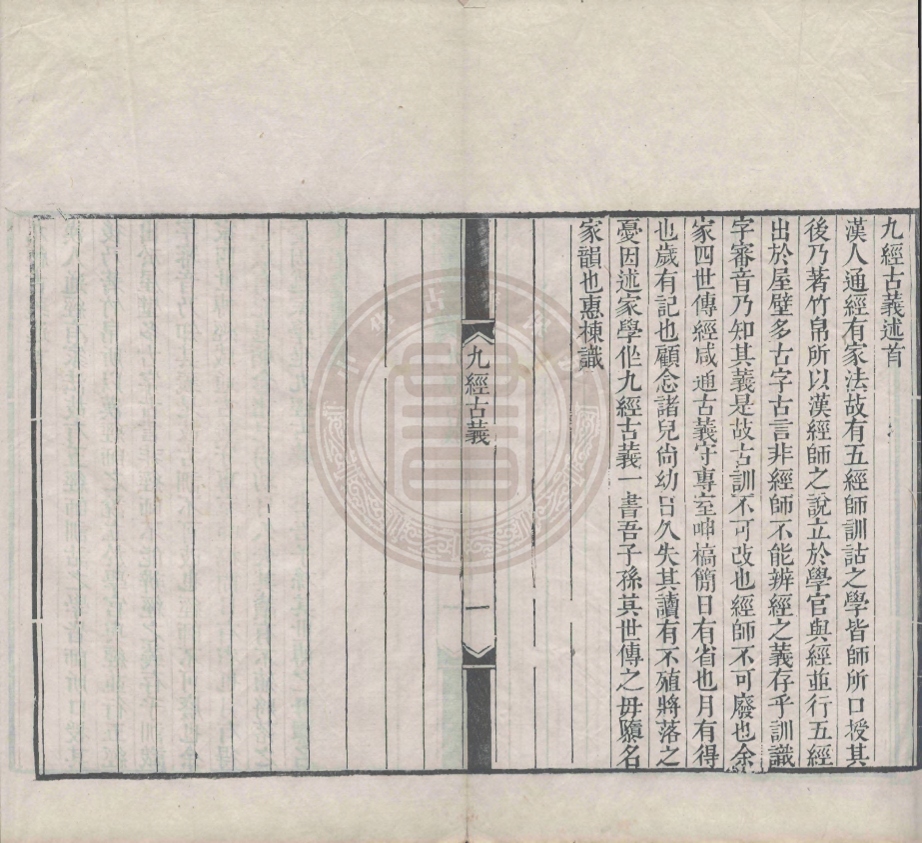 九經古義述首
漢人通經有家法故有五經師訓詁之學皆師所口授其
後乃著竹帛所以漢經師之說立於學官與經並行五經
出於屋壁多古字古言非經師不能辨經之義存乎訓識
字審音乃知其義是故古訓不可改也經師不可廢也余
家四世傳經咸通古義守專室呻槁簡日有省也月有得
也歲有記也顧念諸兒尚幼日久失其讀有不殖將落之
憂因述家學作九經古義一書吾子孫其世傳之毋隳名
家韻也惠棟識
九經古義
一